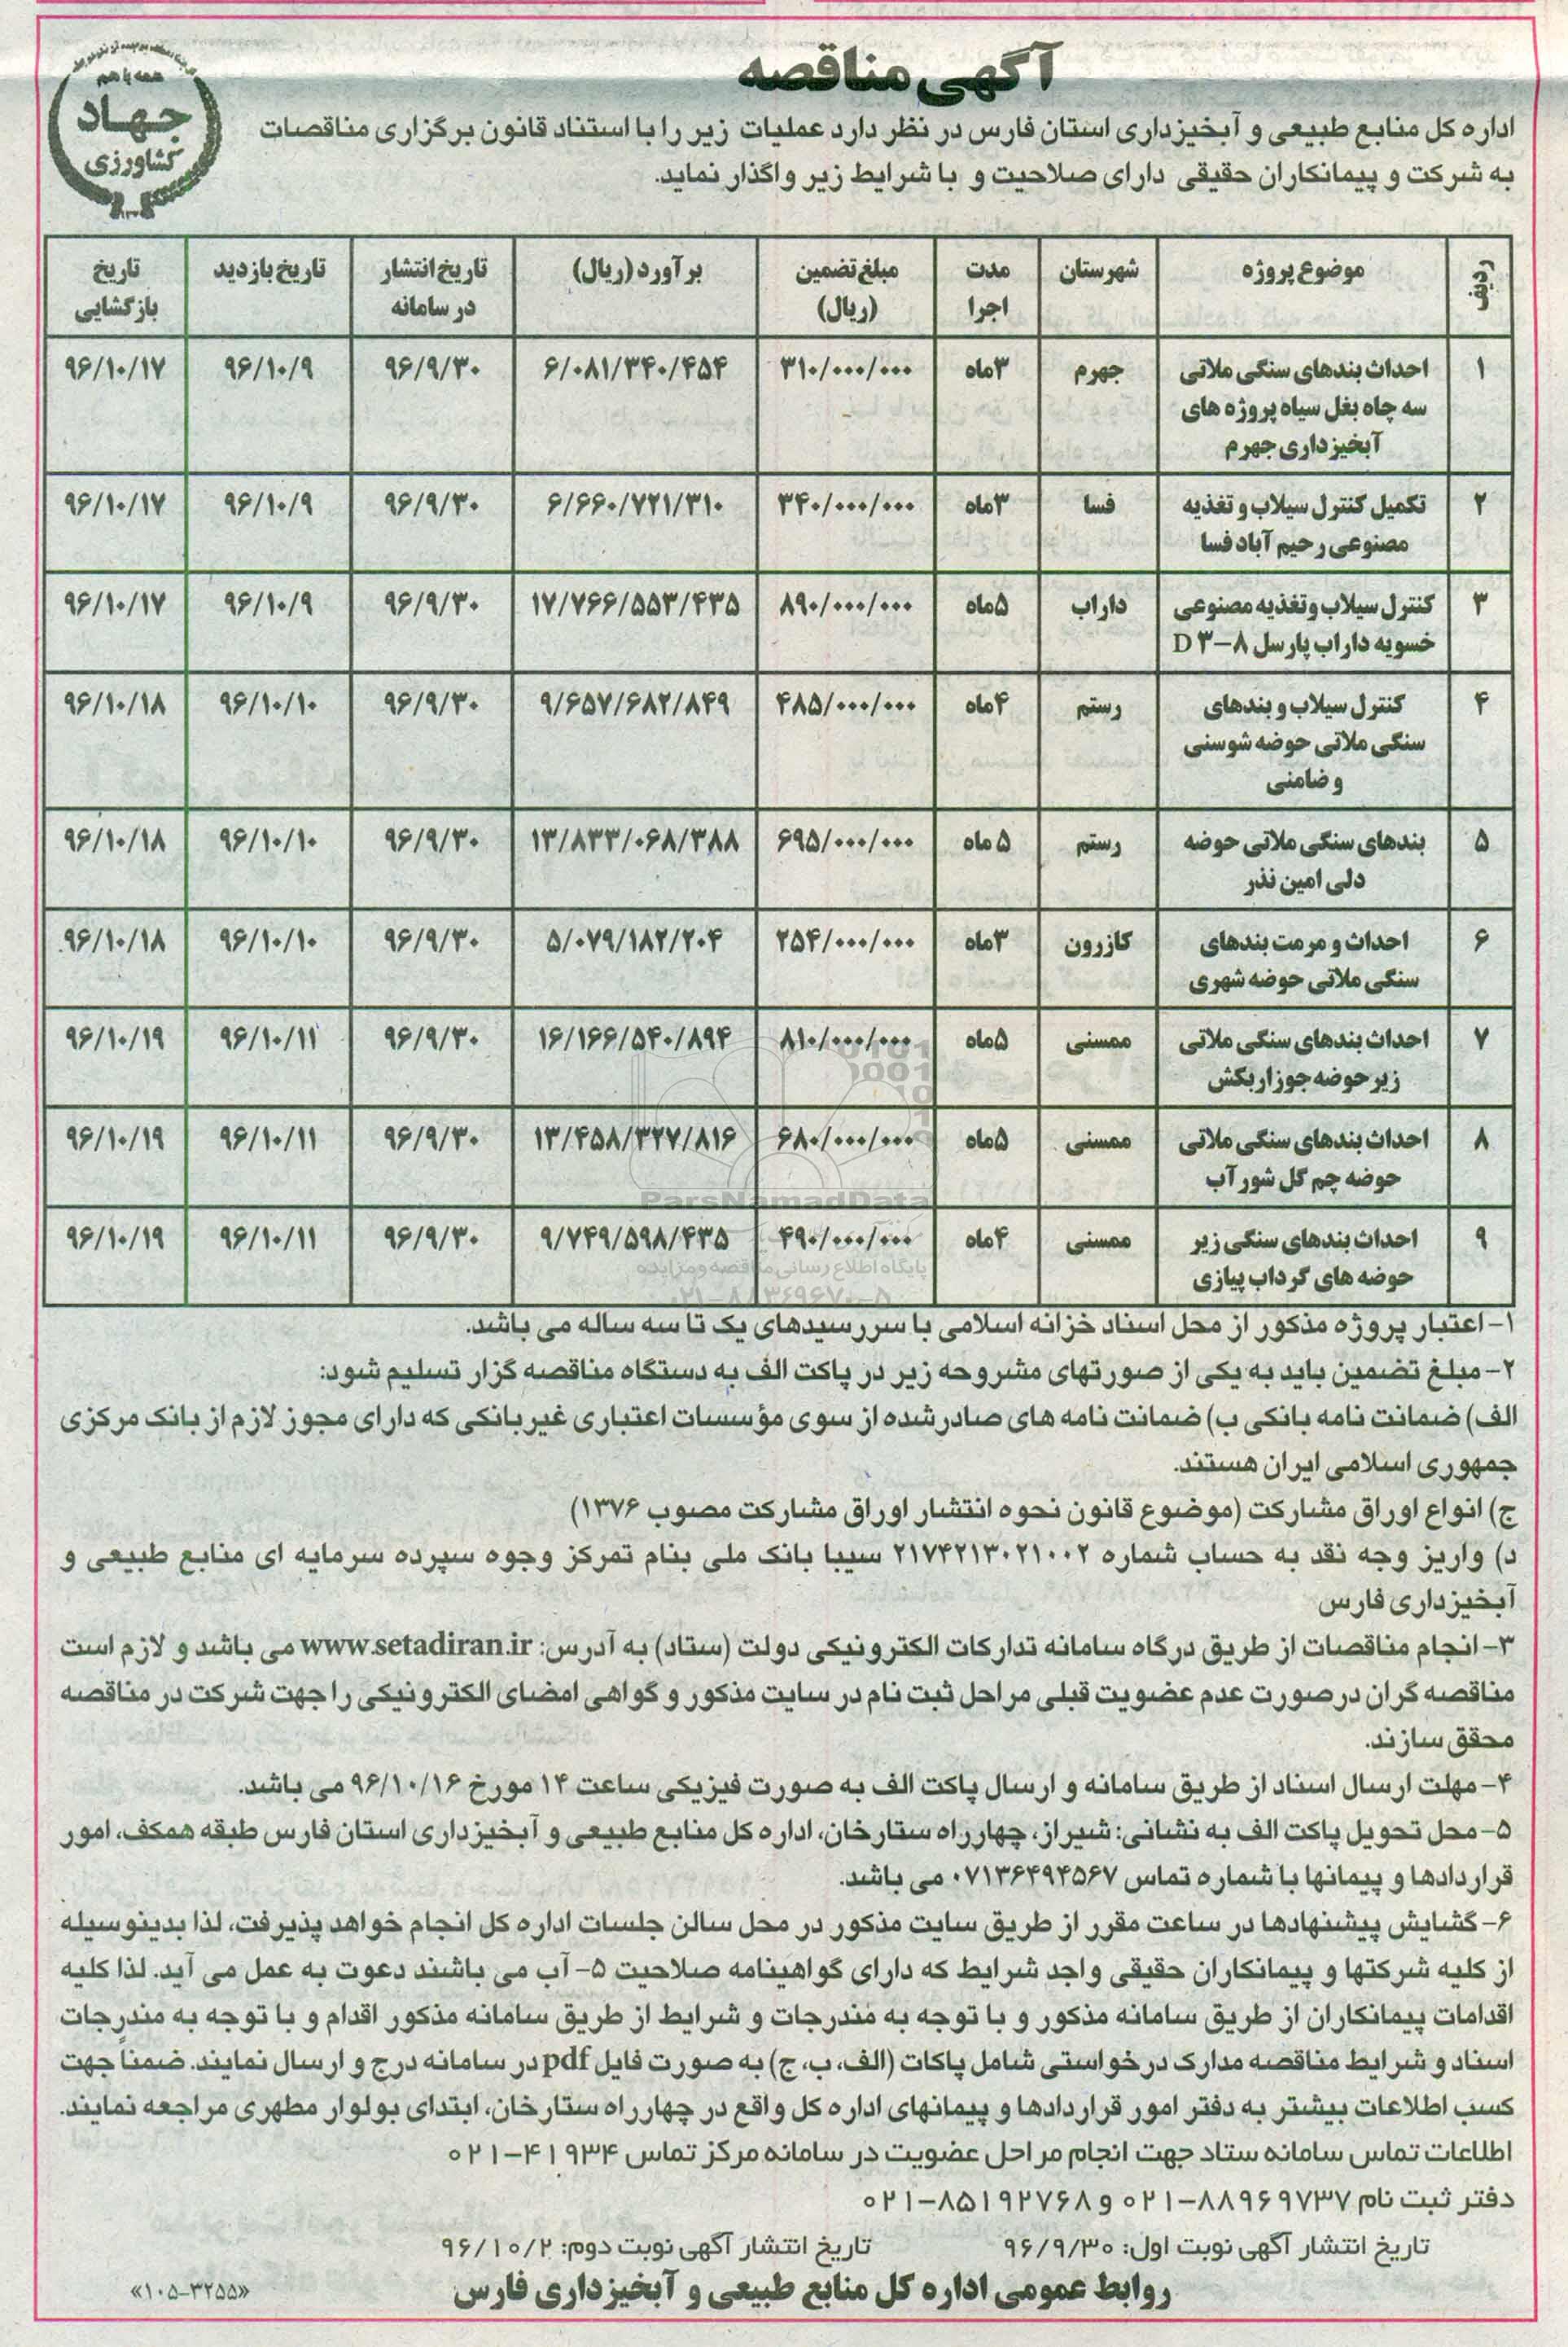 آگهی مناقصه
همه با هم
جهاد
کشاورزی
اداره کل منابع طبیعی و آبخیزداری استان فارس در نظر دارد عملیات زیر را با استناد قانون برگزاری مناقصات
به شرکت و پیمانکاران حقیقی دارای صلاحیت و با شرایط زیر واگذار نماید.
ردیف | موضوع پروژه | شهرستان | مدت اجرا | مبلغ تضمین (ریال) | برآورد (ریال) | تاریخ انتشار در سامانه | تاریخ بازدید | تاریخ بازگشایی
۱ | احداث بندهای سنگی ملاتی سه چاه بغل سیاه پروژه های آبخیزداری جهرم | جهرم | ۳ماه | ۳۱۰/۰۰۰/۰۰۰ | ۶/۰۸۱/۳۴۰/۴۵۴ | ۹۶/۹/۳۰ | ۹۶/۱۰/۹ | ۹۶/۱۰/۱۷
۲ | تکمیل کنترل سیلاب و تغذیه مصنوعی رحیم آباد فسا | فسا | ۳ماه | ۳۴۰/۰۰۰/۰۰۰ | ۶/۶۶۰/۷۲۱/۳۱۰ | ۹۶/۹/۳۰ | ۹۶/۱۰/۹ | ۹۶/۱۰/۱۷
۳ | کنترل سیلاب و تغذیه مصنوعی خسویه داراب پارسل ۸-۳ D | داراب | ۵ماه | ۸۹۰/۰۰۰/۰۰۰ | ۱۷/۷۶۶/۵۵۳/۴۳۵ | ۹۶/۹/۳۰ | ۹۶/۱۰/۹ | ۹۶/۱۰/۱۷
۴ | کنترل سیلاب و بندهای سنگی ملاتی حوضه شوسنی و ضامنی | رستم | ۴ماه | ۴۸۵/۰۰۰/۰۰۰ | ۹/۶۵۷/۶۸۲/۸۴۹ | ۹۶/۹/۳۰ | ۹۶/۱۰/۱۰ | ۹۶/۱۰/۱۸
۵ | بندهای سنگی ملاتی حوضه دلی امین نذر | رستم | ۵ ماه | ۶۹۵/۰۰۰/۰۰۰ | ۱۳/۸۳۳/۰۶۸/۳۸۸ | ۹۶/۹/۳۰ | ۹۶/۱۰/۱۰ | ۹۶/۱۰/۱۸
۶ | احداث و مرمت بندهای سنگی ملاتی حوضه شهری | کازرون | ۳ماه | ۲۵۴/۰۰۰/۰۰۰ | ۵/۰۷۹/۱۸۲/۲۰۴ | ۹۶/۹/۳۰ | ۹۶/۱۰/۱۰ | ۹۶/۱۰/۱۸
۷ | احداث بندهای سنگی ملاتی زیر حوضه جوزاربکش | ممسنی | ۵ماه | ۸۱۰/۰۰۰/۰۰۰ | ۱۶/۱۶۶/۵۴۰/۸۹۴ | ۹۶/۹/۳۰ | ۹۶/۱۰/۱۱ | ۹۶/۱۰/۱۹
۸ | احداث بندهای سنگی ملاتی حوضه چم گل شورآب | ممسنی | ۵ماه | ۶۸۰/۰۰۰/۰۰۰ | ۱۳/۴۵۸/۳۲۷/۸۱۶ | ۹۶/۹/۳۰ | ۹۶/۱۰/۱۱ | ۹۶/۱۰/۱۹
۹ | احداث بندهای سنگی زیر حوضه های گرداب پیازی | ممسنی | ۴ماه | ۴۹۰/۰۰۰/۰۰۰ | ۹/۷۴۹/۵۹۸/۴۳۵ | ۹۶/۹/۳۰ | ۹۶/۱۰/۱۱ | ۹۶/۱۰/۱۹
ParsNamadData
پایگاه اطلاع رسانی مناقصه و مزایده
۰۲۱-۸۸۳۴۹۶۷۰-۵
۱- اعتبار پروژه مذکور از محل اسناد خزانه اسلامی با سررسیدهای یک تا سه ساله می باشد.
۲- مبلغ تضمین باید به یکی از صورتهای مشروحه زیر در پاکت الف به دستگاه مناقصه گزار تسلیم شود:
الف) ضمانت نامه بانکی ب) ضمانت نامه های صادرشده از سوی مؤسسات اعتباری غیربانکی که دارای مجوز لازم از بانک مرکزی
جمهوری اسلامی ایران هستند.
ج) انواع اوراق مشارکت (موضوع قانون نحوه انتشار اوراق مشارکت مصوب ۱۳۷۶)
د) واریز وجه نقد به حساب شماره ۲۱۷۴۲۱۳۰۲۱۰۰۲ سیبا بانک ملی بنام تمرکز وجوه سپرده سرمایه ای منابع طبیعی و
آبخیزداری فارس
۳- انجام مناقصات از طریق درگاه سامانه تدارکات الکترونیکی دولت (ستاد) به آدرس: www.setadiran.ir می باشد و لازم است
مناقصه گران درصورت عدم عضویت قبلی مراحل ثبت نام در سایت مذکور و گواهی امضای الکترونیکی را جهت شرکت در مناقصه
محقق سازند.
۴- مهلت ارسال اسناد از طریق سامانه و ارسال پاکت الف به صورت فیزیکی ساعت ۱۴ مورخ ۹۶/۱۰/۱۶ می باشد.
۵- محل تحویل پاکت الف به نشانی: شیراز، چهارراه ستارخان، اداره کل منابع طبیعی و آبخیزداری استان فارس طبقه همکف، امور
قراردادها و پیمانها با شماره تماس ۰۷۱۳۶۴۹۴۵۶۷ می باشد.
۶- گشایش پیشنهادها در ساعت مقرر از طریق سایت مذکور در محل سالن جلسات اداره کل انجام خواهد پذیرفت، لذا بدینوسیله
از کلیه شرکتها و پیمانکاران حقیقی واجد شرایط که دارای گواهینامه صلاحیت ۵- آب می باشند دعوت به عمل می آید. لذا کلیه
اقدامات پیمانکاران از طریق سامانه مذکور و با توجه به مندرجات و شرایط از طریق سامانه مذکور اقدام و با توجه به مندرجات
اسناد و شرایط مناقصه مدارک درخواستی شامل پاکات (الف، ب، ج) به صورت فایل pdf در سامانه درج و ارسال نمایند. ضمناً جهت
کسب اطلاعات بیشتر به دفتر امور قراردادها و پیمانهای اداره کل واقع در چهارراه ستارخان، ابتدای بولوار مطهری مراجعه نمایند.
اطلاعات تماس سامانه ستاد جهت انجام مراحل عضویت در سامانه مرکز تماس ۴۱۹۳۴-۰۲۱
دفتر ثبت نام ۸۸۹۶۹۷۳۷-۰۲۱ و ۸۵۱۹۲۷۶۸-۰۲۱
تاریخ انتشار آگهی نوبت اول: ۹۶/۹/۳۰ تاریخ انتشار آگهی نوبت دوم: ۹۶/۱۰/۲
روابط عمومی اداره کل منابع طبیعی و آبخیزداری فارس
«۱۰۵-۳۲۵۵»